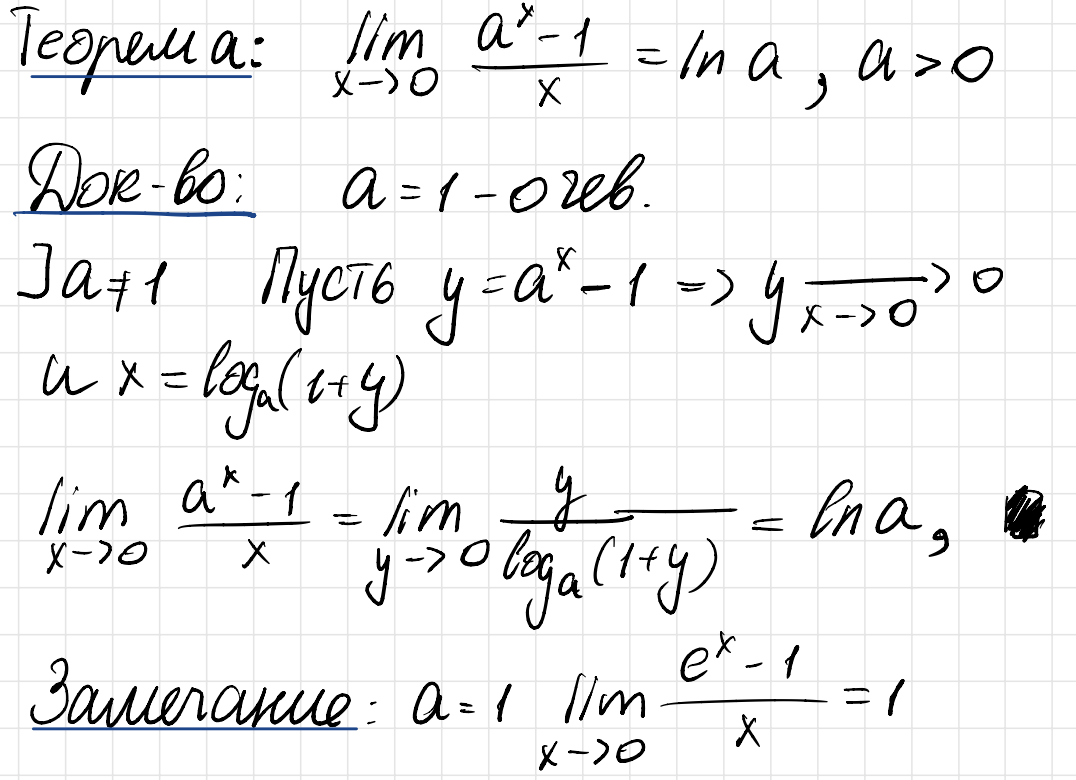 Теорема: lim x->0 (a^x - 1)/x = ln a, a > 0
Док-во: a = 1 - очев.
] a ≠ 1 Пусть y = a^x - 1 => y —> 0 x->0
и x = log_a(1+y)
lim x->0 (a^x - 1)/x = lim y->0 y/log_a(1+y) = ln a,
Замечание: a = 1 lim x->0 (e^x - 1)/x = 1